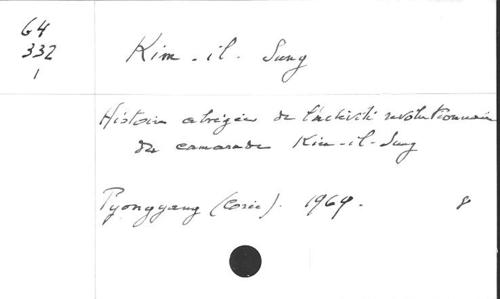 64
332
1
Kim-il-Sung
Histoire abrégée de l'activité revolutionnaire
du camarade Kim-il-Sung
Pyonggyang (Corée). 1969. 8